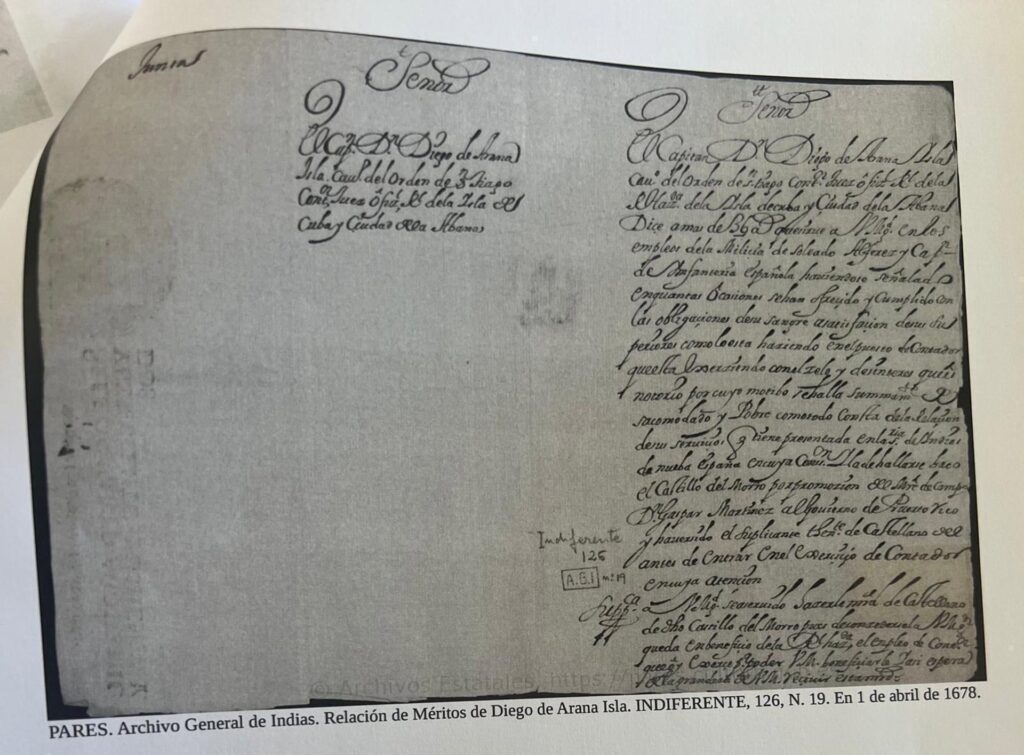 Juntas
Señor
El Capn. Dn. Diego de Arana
Isla. Cauo. del Orden de S.tiago
Contor. Juez ofiz. Rl. de la Isla de
Cuba y Ciudad de la Abana
Señor
El Capitan Dn. Diego de Arana Isla
Cauo. del Orden de S.tiago Contor. Juez ofiz. Rl. de la
Rl. Hazda. de la Isla de cuba y Ciudad de la Abana
Dice a mas de que sirue a V. Mgd. en los
empleos de la Milicia de Soldado Alferez y Capn.
de Ynfanteria Española hauiendose señalado
en quantas Ocasiones sehan ofrecido y Cumplido con
las obligaciones desu sangre a satisfacion desus su
periores como lo esta haciendo en el puesto de Contador
que esta Exerciendo con el zelo y desinteres que es
notorio por cuyo motibo se halla summamte. de
sacomodado y Pobre como todo Consta de la Relacion
desus seruicios q tiene presentada en la sria. de Yndias
de nueba españa en cuya Consn. y la de hallarse baco
el Castillo del Morro por promozion del Mre. de Campo
Dn. Gaspar Martinez al Gouierno de Puerto Rico
y hauer sido el suplicante thente. de Castellano del
antes de Entrar En el exercicio de Contador
en cuya atencion
Suppca. a V. Mgd. sea seruido hacerle mrd. de Castellano
de dho Castillo del Morro pues de concedersela V. Mgd.
queda en beneficio de la Rl. hazda. el empleo de Contor.
que oy Exerce p.r poder V.M. beneficiarle Assi espera
de la grandeza de V.M. reciuir esta mrd.
Indiferente
126
A.G.I nº 19
© Archivos Estatales, https://
PARES. Archivo General de Indias. Relación de Méritos de Diego de Arana Isla. INDIFERENTE, 126, N. 19. En 1 de abril de 1678.